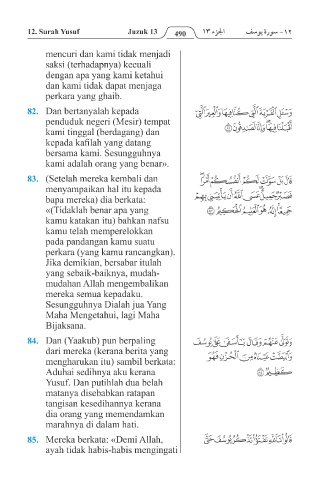 12. Surah Yusuf Juzuk 13 490 الجزء ١٣ ١٢ – سورة يوسف
mencuri dan kami tidak menjadi
saksi (terhadapnya) kecuali
dengan apa yang kami ketahui
dan kami tidak dapat menjaga
perkara yang ghaib.
82. Dan bertanyalah kepada
penduduk negeri (Mesir) tempat
kami tinggal (berdagang) dan
kepada kafilah yang datang
bersama kami. Sesungguhnya
kami adalah orang yang benar».
وَسْـَٔلِ ٱلْقَرْيَةَ ٱلَّتِى كُنَّا فِيهَا وَٱلْعِيرَ ٱلَّتِىٓ
أَقْبَلْنَا فِيهَا وَإِنَّا لَصَـٰدِقُونَ ۝٨٢
83. (Setelah mereka kembali dan
menyampaikan hal itu kepada
bapa mereka) dia berkata:
«(Tidaklah benar apa yang
kamu katakan itu) bahkan nafsu
kamu telah memperelokkan
pada pandangan kamu suatu
perkara (yang kamu rancangkan).
Jika demikian, bersabar itulah
yang sebaik-baiknya, mudah-
mudahan Allah mengembalikan
mereka semua kepadaku.
Sesungguhnya Dialah jua Yang
Maha Mengetahui, lagi Maha
Bijaksana.
قَالَ بَلْ سَوَّلَتْ لَكُمْ أَنفُسُكُمْ أَمْرًا
فَصَبْرٌ جَمِيلٌ عَسَى ٱللَّهُ أَن يَأْتِيَنِى بِهِمْ
جَمِيعًا إِنَّهُۥ هُوَ ٱلْعَلِيمُ ٱلْحَكِيمُ ۝٨٣
84. Dan (Yaakub) pun berpaling
dari mereka (kerana berita yang
mengharukan itu) sambil berkata:
Aduhai sedihnya aku kerana
Yusuf. Dan putihlah dua belah
matanya disebabkan ratapan
tangisan kesedihannya kerana
dia orang yang memendamkan
marahnya di dalam hati.
وَتَوَلَّىٰ عَنْهُمْ وَقَالَ يَـٰٓأَسَفَىٰ عَلَىٰ يُوسُفَ
وَٱبْيَضَّتْ عَيْنَاهُ مِنَ ٱلْحُزْنِ فَهُوَ
كَظِيمٌ ۝٨٤
85. Mereka berkata: «Demi Allah,
ayah tidak habis-habis mengingati
قَالُوا۟ تَٱللَّهِ تَفْتَؤُا۟ تَذْكُرُ يُوسُفَ حَتَّىٰ